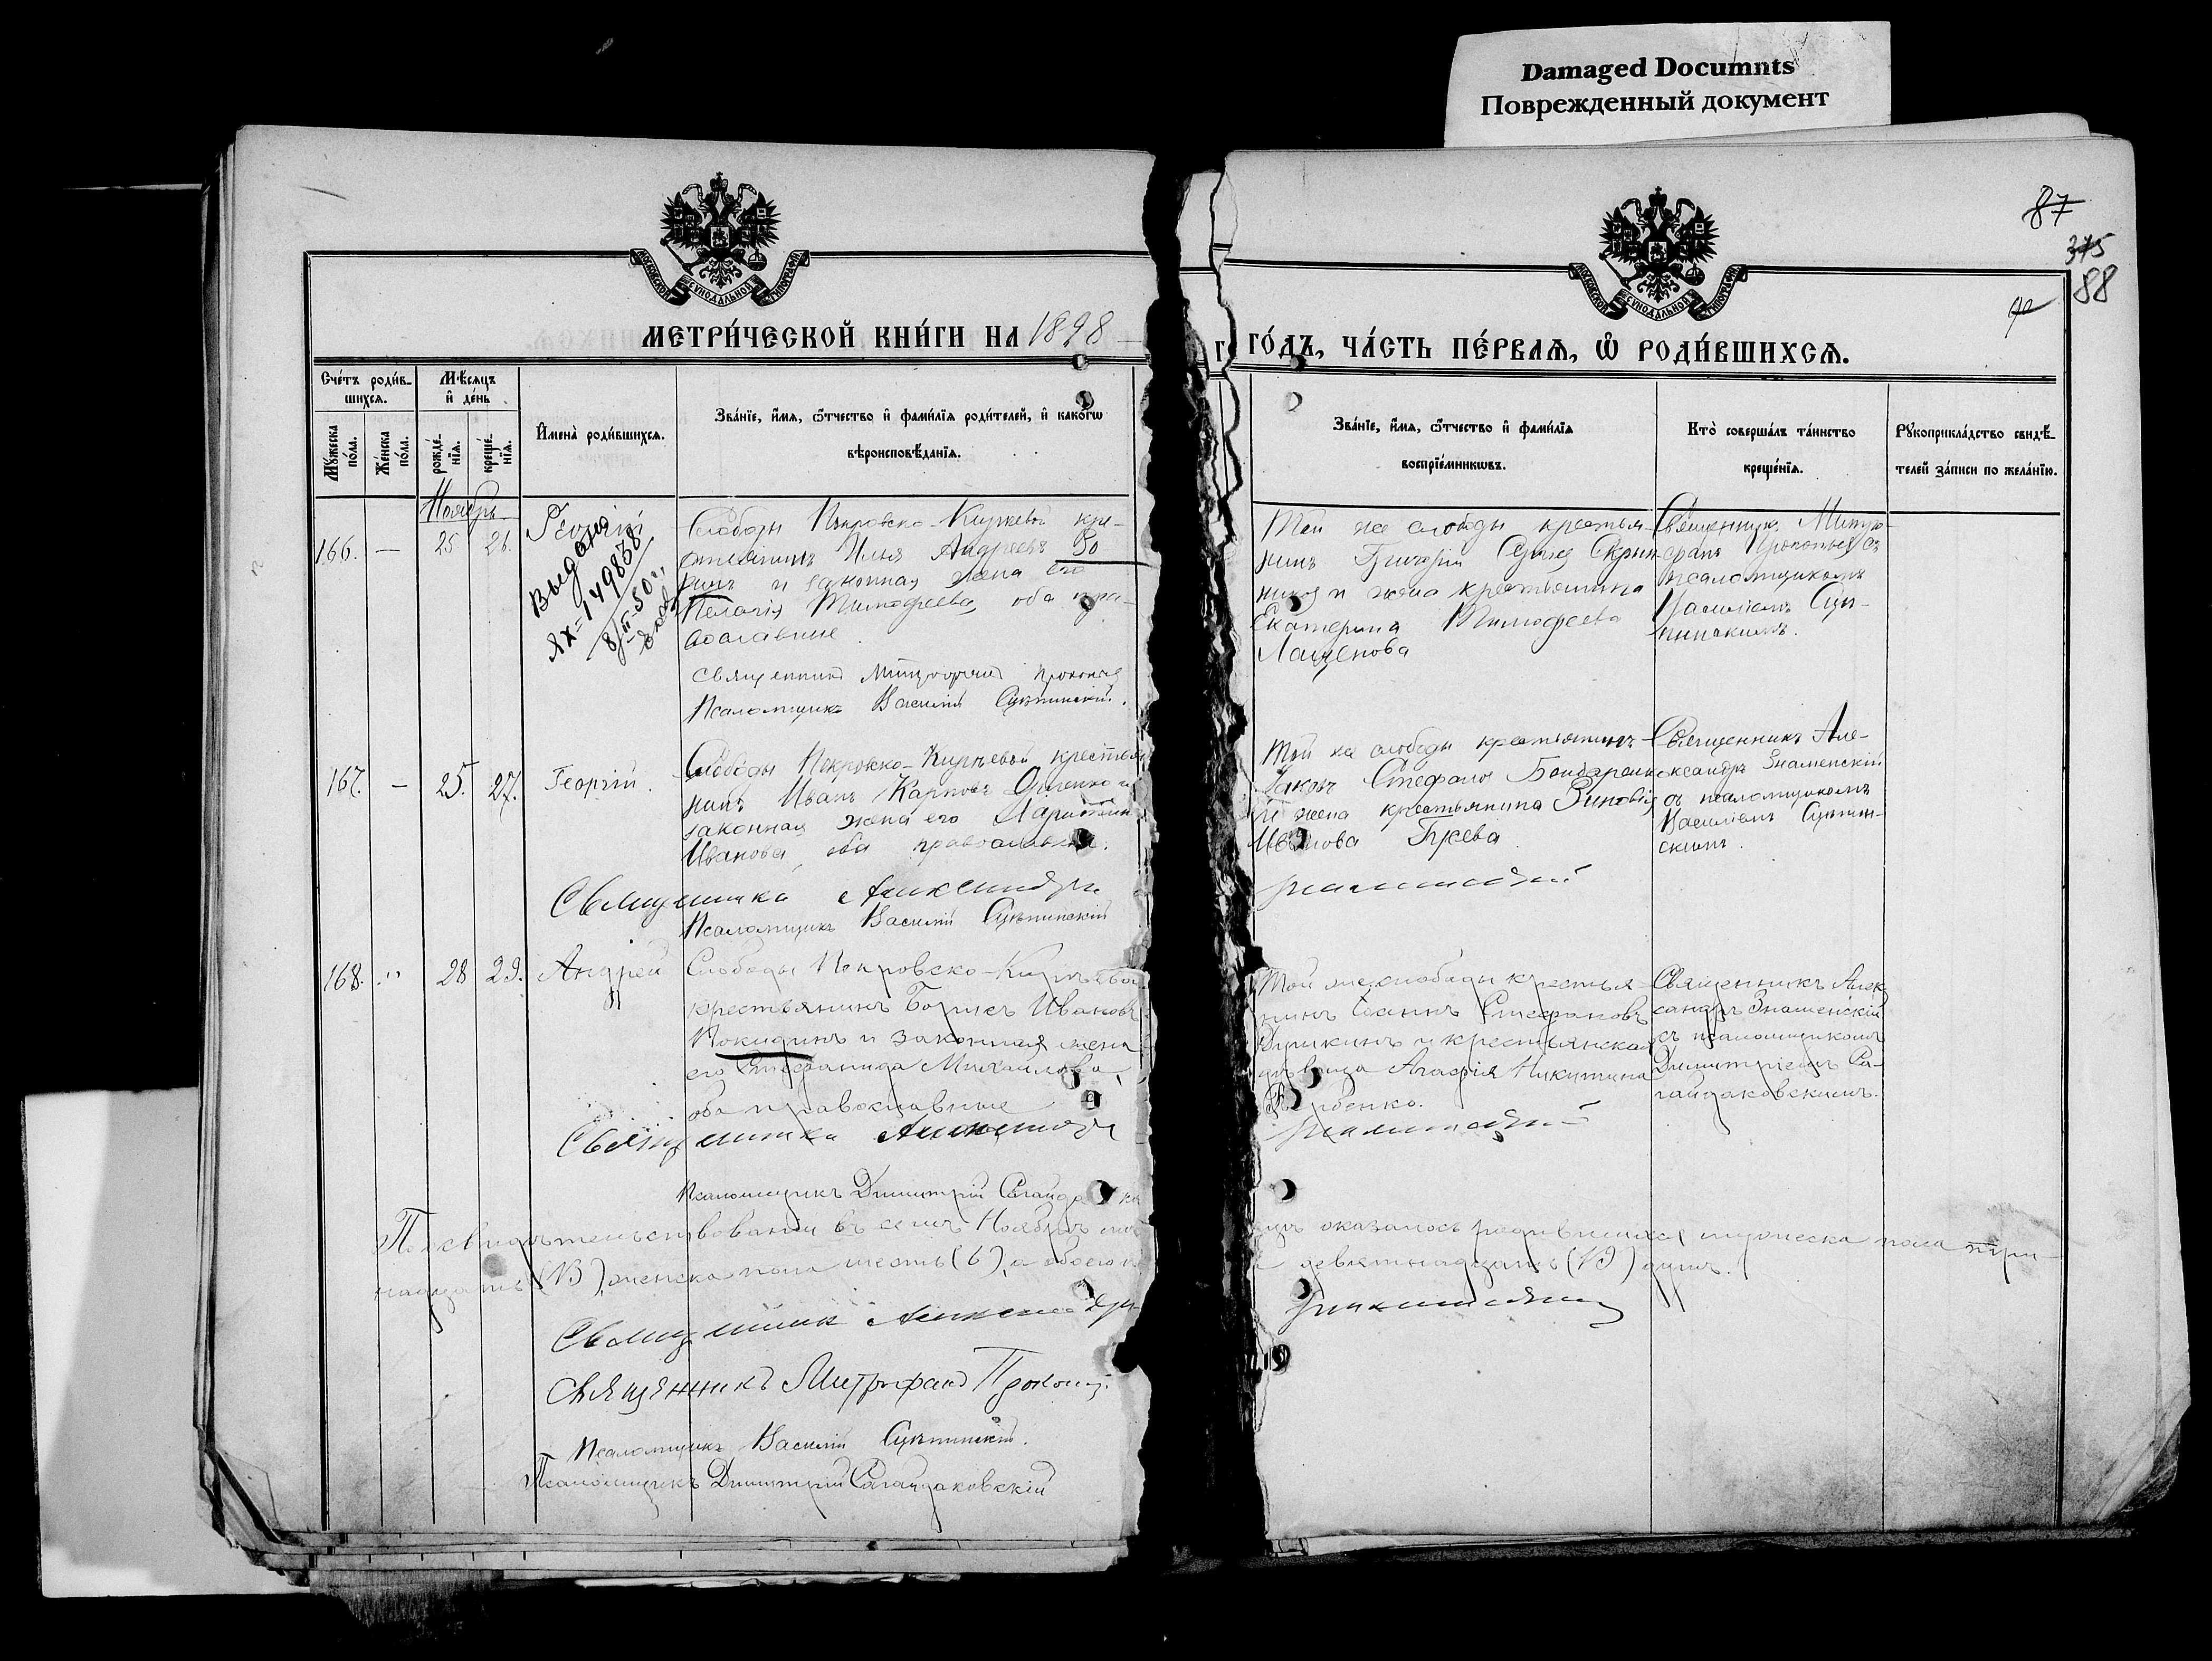 Damaged Documnts
Поврежденный документ
87
375
88
МОСКОВСКОЙ СУНОДАЛЬНОЙ ТИПОГРАФІИ
МОСКОВСКОЙ СУНОДАЛЬНОЙ ТИПОГРАФІИ
МЕТРИ́ЧЕСКОЙ КНИ́ГИ НА 1898
ГО́ДЪ, ЧА́СТЬ ПЕ́РВАѦ, Ѽ РОДИ́ВШИХСѦ.
Сче́тъ роди́вшихсѧ.
Мѣ́сяцъ и҆ де́нь
Мꙋ́жеска по́ла.
Же́нска по́ла.
рожде́нїѧ.
креще́нїѧ.
И҆мена̀ роди́вшихсѧ.
Зва́нїе, и҆́мѧ, ѻ҆́тчество и҆ фами́лїѧ роди́телей, и҆ како́гѡ
вѣроисповѣ́данїѧ.
Зва́нїе, и҆́мѧ, ѻ҆́тчество и҆ фами́лїѧ
воспрїе́мникѡвъ.
Кто̀ соверша́лъ та́инство
креще́нїѧ.
Рꙋкоприкла́дство свидѣ́телей за́писи по жела́нїю.
Ноябрь
166. — 25 26. Георгій
Выдано
ЯХ=149838
8/II-50 г.
Слободы Покровско-Киреевой кре-
стьянинъ Илья Андреевъ
и законная жена его
Пелагія Тимофеева, оба пра-
вославные.
Священникъ Митрофанъ Прокопьевъ
Псаломщикъ Василій
Той же слободы крестья-
нинъ Григорій
и жена крестьянина
Екатерина Тимофеева
Лащенова
Священникъ Митро-
фанъ Прокопьевъ съ
псаломщикомъ
Василіемъ
167. — 25. 27. Георгій.
Слободы Покровско-Киреевой крестья-
нинъ Иванъ Карповъ
законная жена его
Иванова, оба православные.
Священникъ Александръ
Псаломщикъ Василій
Той же слободы крестьянинъ
Яковъ Стефановъ Бондаренко
и жена крестьянина Зиновія
Иванова Гусева
Знаменскій
Священникъ Але-
ксандръ Знаменскій
съ псаломщикомъ
Василіемъ
168. " 28 29. Андрей
Слободы Покровско-Киреевой
крестьянинъ Борисъ Ивановъ
и законная жена
его Стефанида Михайлова,
оба православные
Священникъ Александръ
Псаломщикъ Димитрій Сагайдаковскій
Той же слободы крестья-
нинъ Іоаннъ Стефановъ
Дишкинъ и крестьянская
дѣвица Агафія Никитина
Священникъ Алек-
сандръ Знаменскій
съ псаломщикомъ
Димитріемъ Са-
гайдаковскимъ.
По свидѣтельствованіи въ семъ Ноябрѣ мѣсяцѣ оказалось родившихся мужеска пола три-
надцать (13), женска пола шесть (6), а обоего девятнадцать (19) душъ.
Священникъ Александръ Знаменскій
Священникъ Митрофанъ Прокопьевъ
Псаломщикъ Василій
Псаломщикъ Димитрій Сагайдаковскій